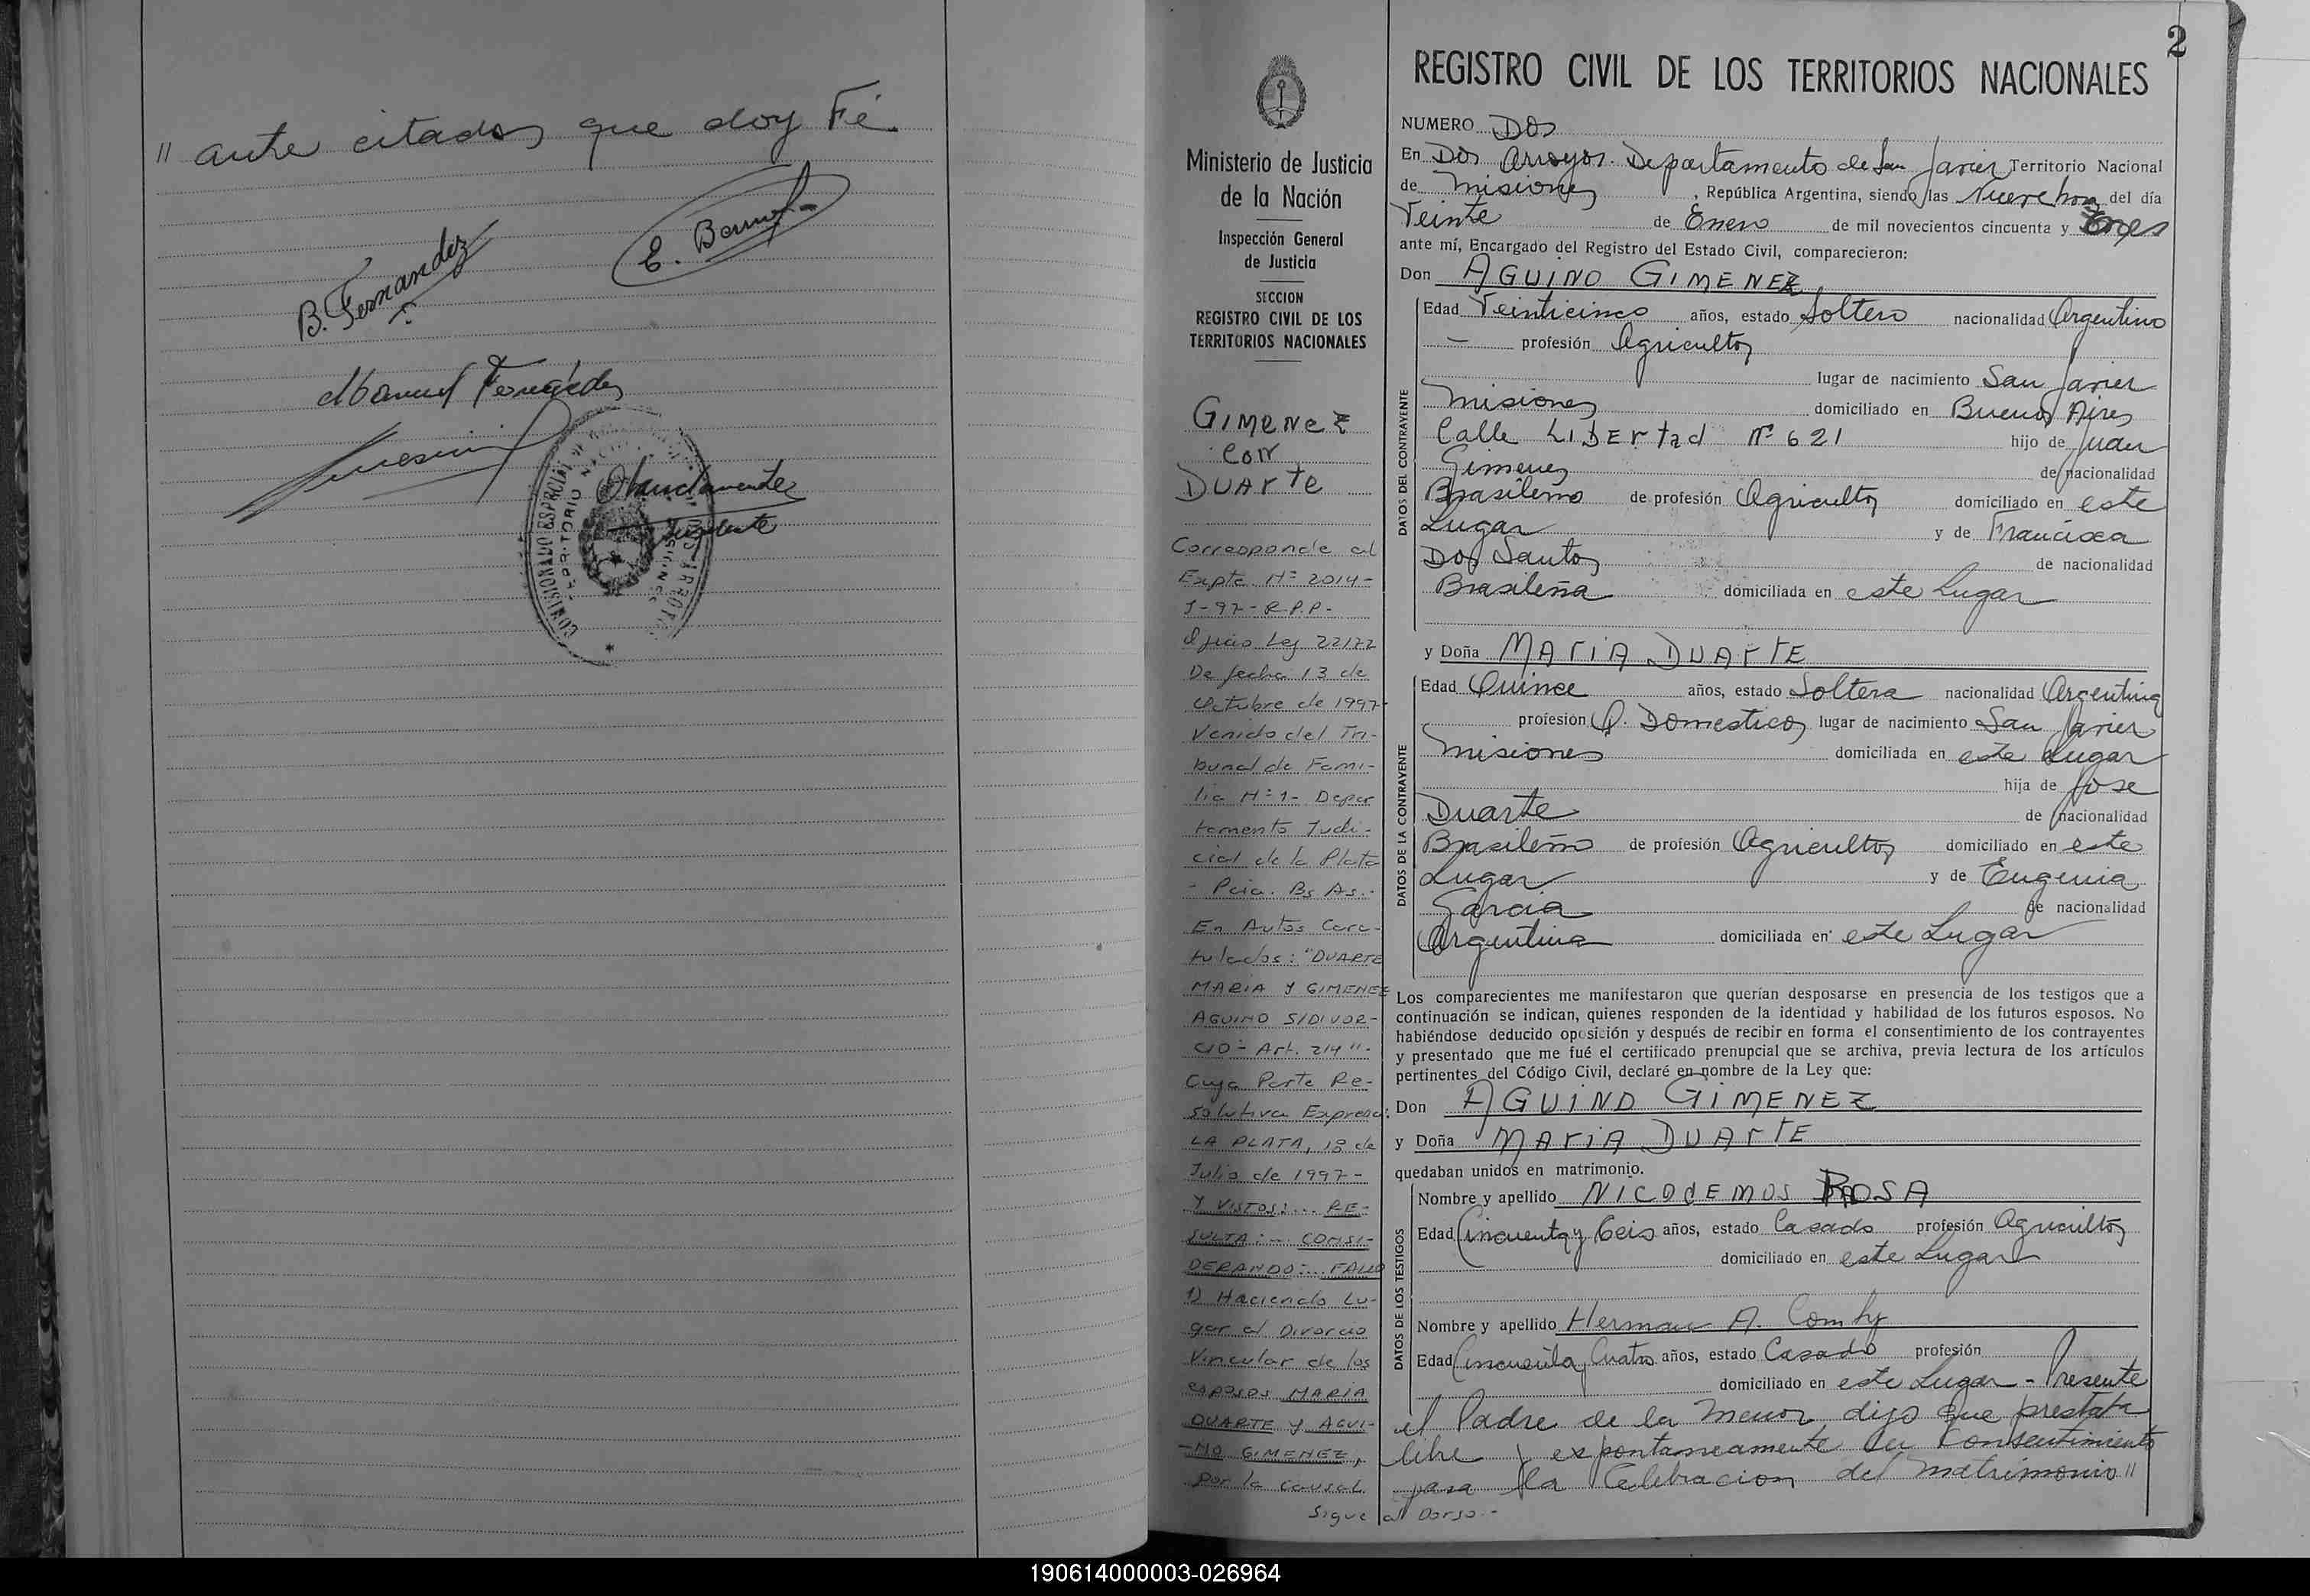 " ante citados que doy Fé
E. B
B. Fernandez
Manuel Fernández
COMISIONADO ESPECIAL
TERRITORIO NAC
MISIONES
Suplente
2
REGISTRO CIVIL DE LOS TERRITORIOS NACIONALES
Ministerio de Justicia
de la Nación
Inspección General
de Justicia
SECCION
REGISTRO CIVIL DE LOS
TERRITORIOS NACIONALES
GIMENEZ
con
DUARTE
Corresponde al
Expte Nº 2014-
J-97-R.P.P.-
Oficio Ley 22172
De fecha 13 de
Octubre de 1997-
Venido del Tri-
bunal de Fami-
lia Nº 1- Depar
tamento Judi-
cial de la Plata
- Pcia. Bs As.-
En Autos Cara-
tulados: "DUARTE
MARIA Y GIMENEZ
AGUINO S/DIVOR-
CIO - Art. 214".
Cuya Parte Re-
solutiva Expresa:
LA PLATA, 18 de
Julio de 1997-
Y VISTOS:... RE-
SULTA:... CONSI-
DERANDO:... FALLO
1) Haciendo Lu-
gar al Divorcio
Vincular de los
esposos MARIA
DUARTE Y AGUI-
-NO GIMENEZ,
por la causal
Sigue al Dorso.-
NUMERO Dos
En Dos Arroyos. Departamento de San Javier Territorio Nacional
de Misiones, República Argentina, siendo las Nueve horas del día
Veinte de Enero de mil novecientos cincuenta y
ante mí, Encargado del Registro del Estado Civil, comparecieron:
Don AGUINO GIMENEZ
DATOS DEL CONTRAYENTE
Edad Veinticinco años, estado Soltero nacionalidad Argentino
— profesión Agricultor
lugar de nacimiento San Javier
Misiones domiciliado en Buenos Aires
Calle LIBERtad Nº 621 hijo de Juan
Gimenez de nacionalidad
Brasileño de profesión Agricultor domiciliado en este
Lugar y de Francisca
Dos Santos de nacionalidad
Brasileña domiciliada en este Lugar
y Doña MARIA DUARTE
DATOS DE LA CONTRAYENTE
Edad Quince años, estado Soltera nacionalidad Argentina
profesión Q. Domesticos lugar de nacimiento San Javier
Misiones domiciliada en este Lugar
hija de Jose
Duarte de nacionalidad
Brasileño de profesión Agricultor domiciliado en este
Lugar y de Eugenia
Garcia de nacionalidad
Argentina domiciliada en este Lugar
Los comparecientes me manifestaron que querían desposarse en presencia de los testigos que a
continuación se indican, quienes responden de la identidad y habilidad de los futuros esposos. No
habiéndose deducido oposición y después de recibir en forma el consentimiento de los contrayentes
y presentado que me fué el certificado prenupcial que se archiva, previa lectura de los artículos
pertinentes del Código Civil, declaré en nombre de la Ley que:
Don AGUINO GIMENEZ
y Doña MARIA DUARTE
quedaban unidos en matrimonio.
DATOS DE LOS TESTIGOS
Nombre y apellido NICODEMOS ROSA
Edad Cincuenta y Ceis años, estado Casado profesión Agricultor
domiciliado en este Lugar
Nombre y apellido Herman A.
Edad Cincuenta y Cuatro años, estado Casado profesión
domiciliado en este Lugar - Presente
el Padre de la menor dijo que prestaba
libre y expontaneamente su Consentimiento
para la Celebracion del matrimonio "
190614000003-026964